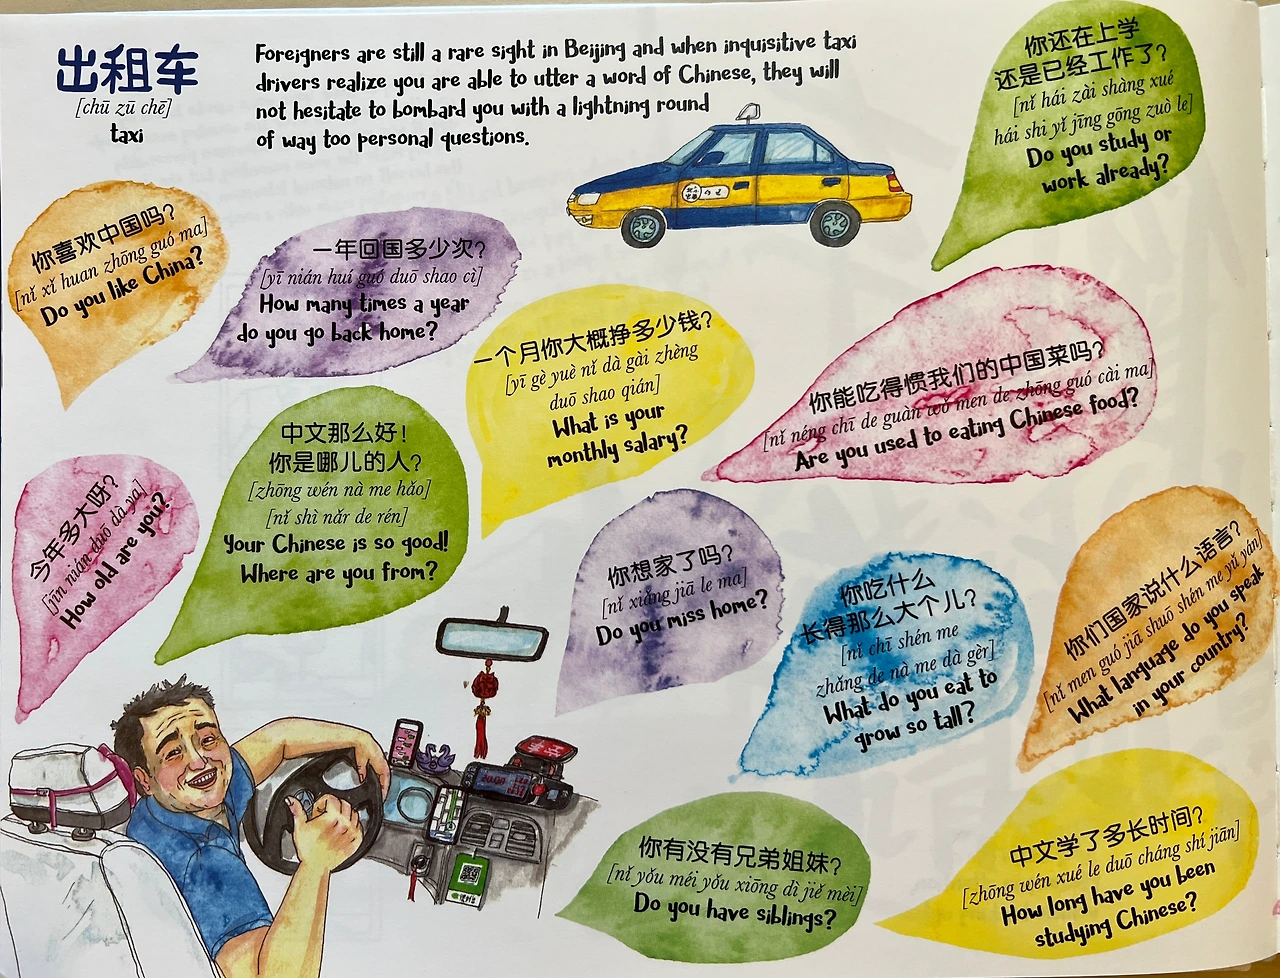 出租车
[chū zū chē]
taxi
Foreigners are still a rare sight in Beijing and when inquisitive taxi
drivers realize you are able to utter a word of Chinese, they will
not hesitate to bombard you with a lightning round
of way too personal questions.
你还在上学
还是已经工作了?
[nǐ hái zài shàng xué
hái shi yǐ jīng gōng zuò le]
Do you study or
work already?
你喜欢中国吗?
[nǐ xǐ huan zhōng guó ma]
Do you like China?
一年回国多少次?
[yī nián huí guó duō shao cì]
How many times a year
do you go back home?
一个月你大概挣多少钱?
[yī gè yuè nǐ dà gài zhèng
duō shao qián]
What is your
monthly salary?
你能吃得惯我们的中国菜吗?
[nǐ néng chī de guàn wǒ men de zhōng guó cài ma]
Are you used to eating Chinese food?
今年多大呀?
[jīn nián duō dà ya]
How old are you?
中文那么好!
你是哪儿的人?
[zhōng wén nà me hǎo]
[nǐ shì nǎr de rén]
Your Chinese is so good!
Where are you from?
你想家了吗?
[nǐ xiǎng jiā le ma]
Do you miss home?
你吃什么
长得那么大个儿?
[nǐ chī shén me
zhǎng de nà me dà gèr]
What do you eat to
grow so tall?
你们国家说什么语言?
[nǐ men guó jiā shuō shén me yǔ yán]
What language do you speak
in your country?
你有没有兄弟姐妹?
[nǐ yǒu méi yǒu xiōng dì jiě mèi]
Do you have siblings?
中文学了多长时间?
[zhōng wén xué le duō cháng shí jiān]
How long have you been
studying Chinese?